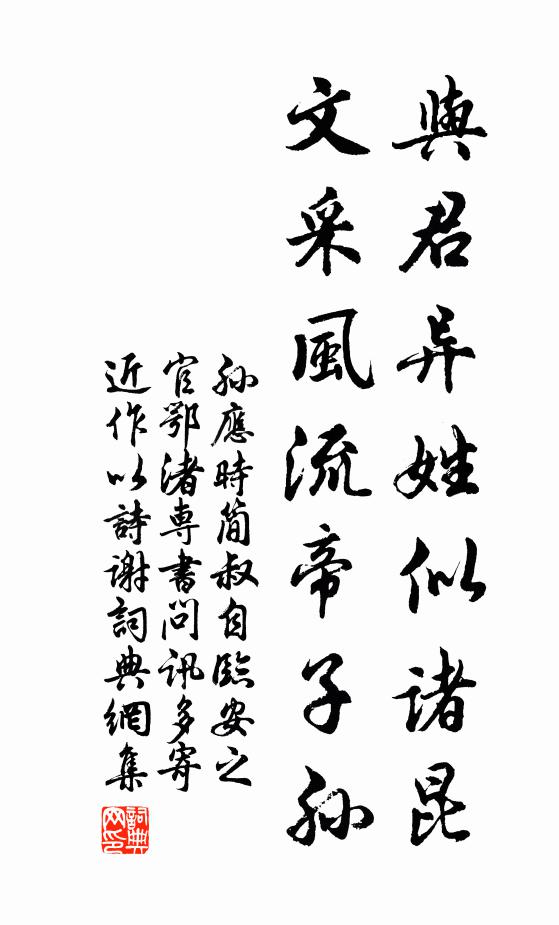 與君异姓似諸昆
文采風流帝子孫
孫應時简叔自臨安之
官鄂渚専書问訊多寄
近作以詩謝詞典網集
詞典
网印